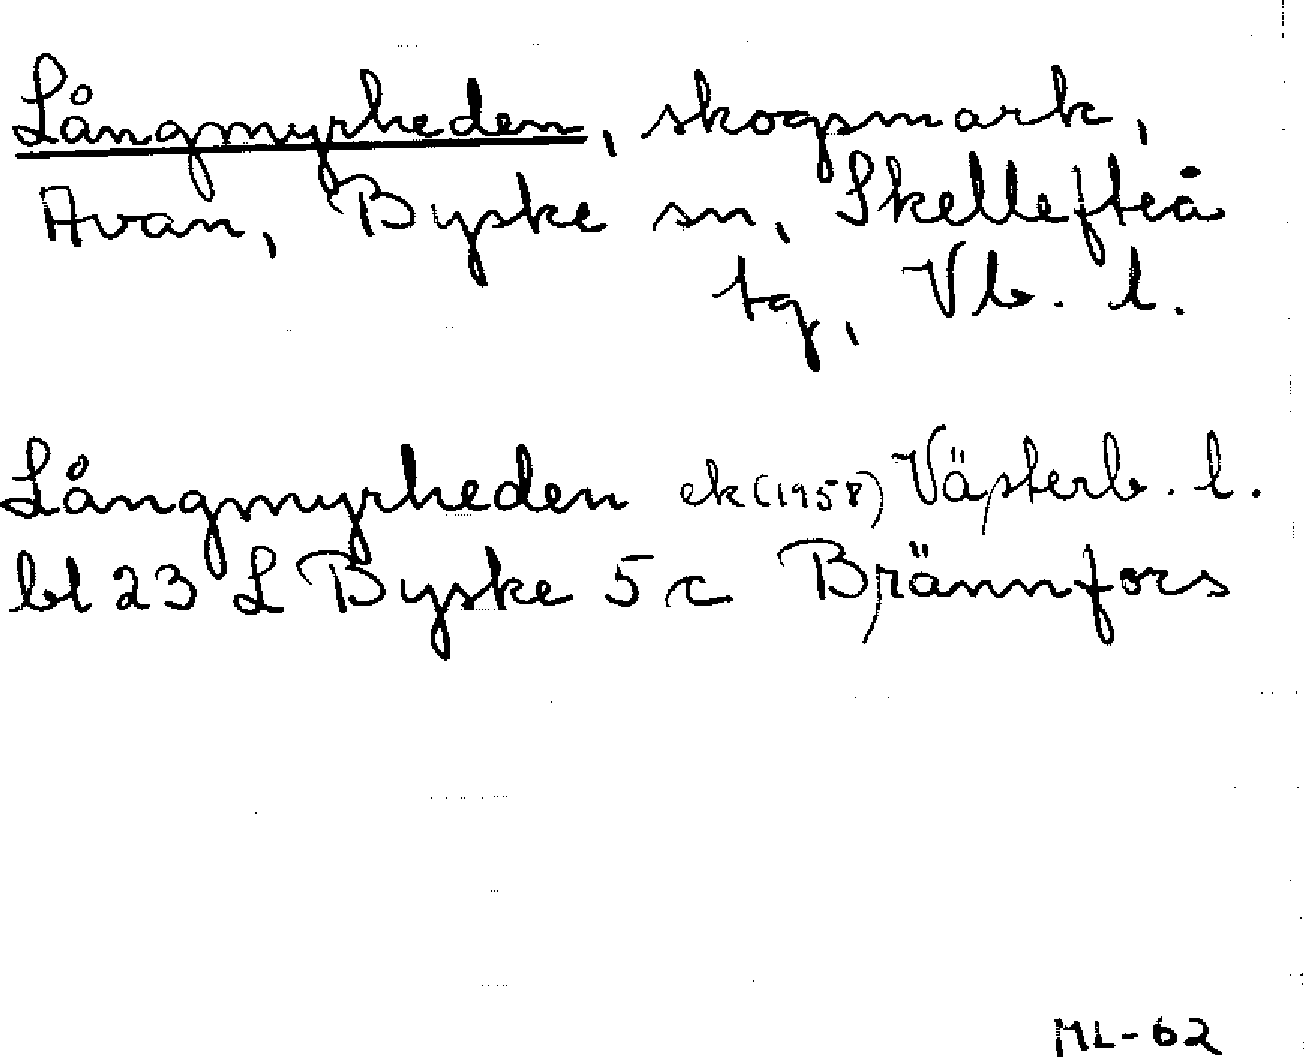 Långmyrheden, skogsmark,
Avan, Byske sn, Skellefteå
tg, Vb. l.
Långmyrheden ek (1958) Västerb. l.
bl 23 L Byske 5 c Brännfors
ML-62